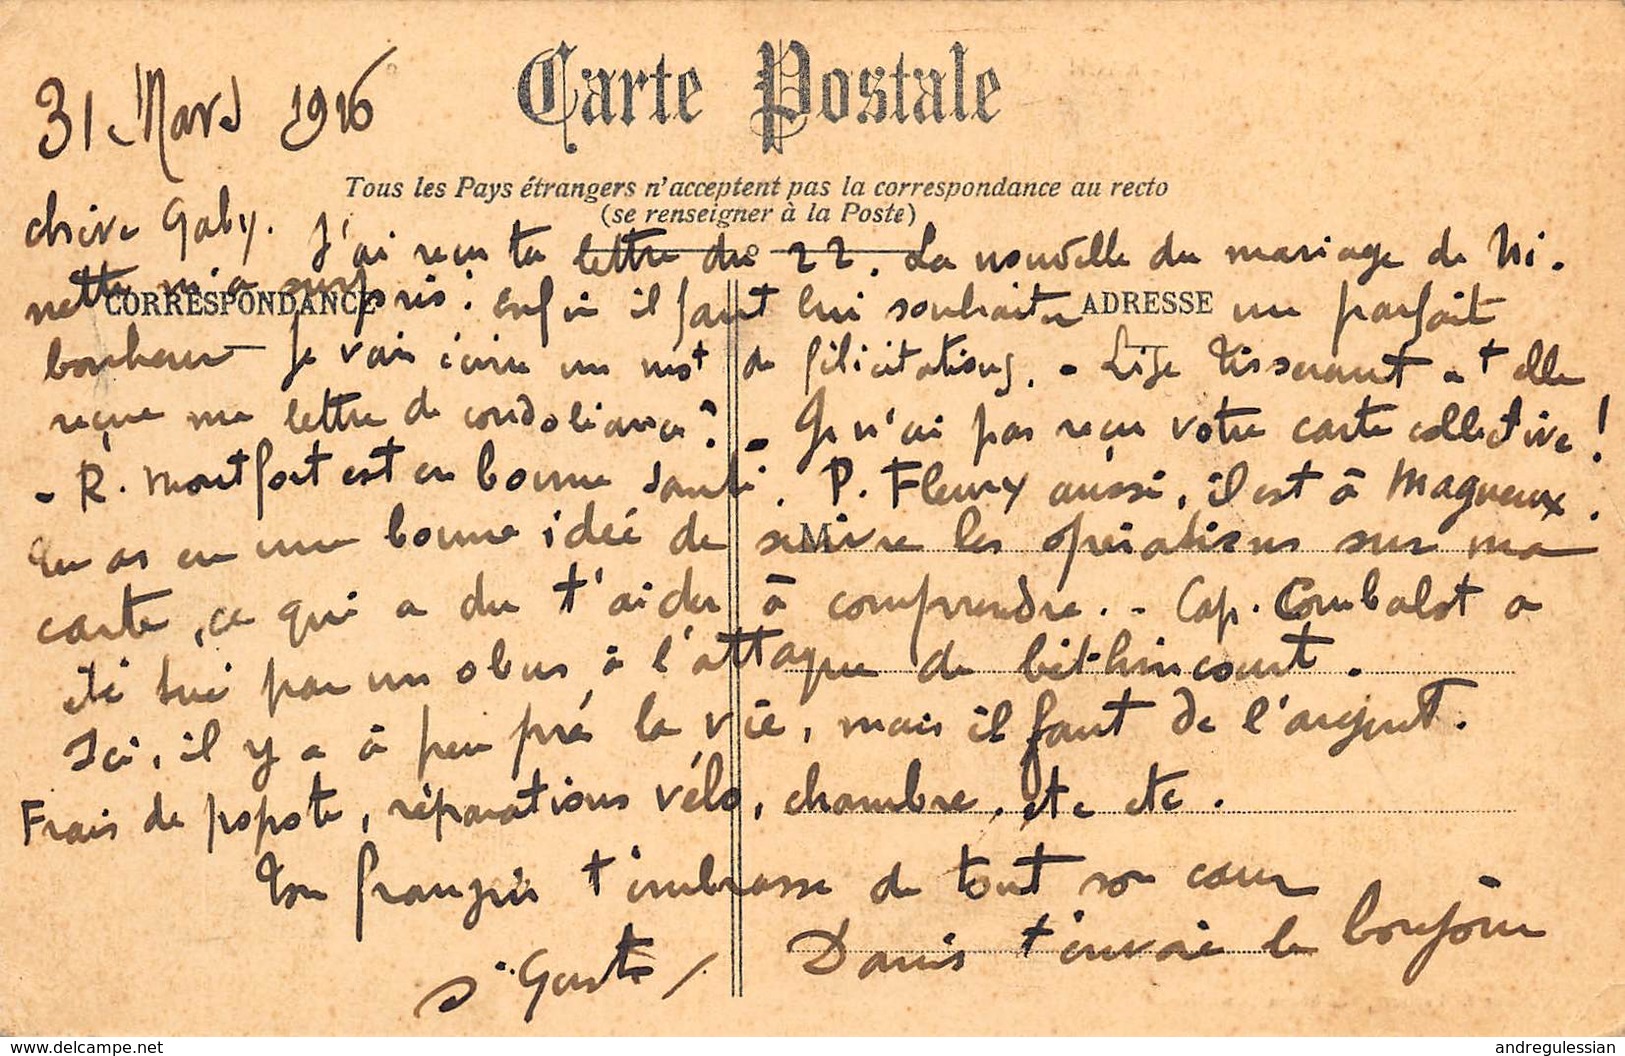 Carte Postale
31 Mars 1916
Tous les Pays étrangers n'acceptent pas la correspondance au recto
(se renseigner à la Poste)
chère Gaby. J'ai reçu ta lettre du 22. La nouvelle du mariage de Ni-
nette m'a surpris. Enfin il faut lui souhaiter un parfait
CORRESPONDANCE
ADRESSE
bonheur je vais écrire un mot de félicitations. - Lise Tisserant a t elle
reçue ma lettre de condoléance? - Je n'ai pas reçu votre carte collective!
- R. Montfort est en bonne santé. P. Fleury aussi, il est à Magneux.
Tu as eu une bonne idée de suivre les opérations sur ma
M
carte, ce qui a du t'aider à comprendre. - Cap. Combalot a
été tué par un obus à l'attaque de béthincourt.
Ici, il y a à peu prés la vie, mais il faut de l'argent.
Frais de popote, réparations vélo, chambre, etc etc.
Ton françois t'embrasse de tout son cœur
Danis t'envoie le bonjour
andregulessian
www.delcampe.net